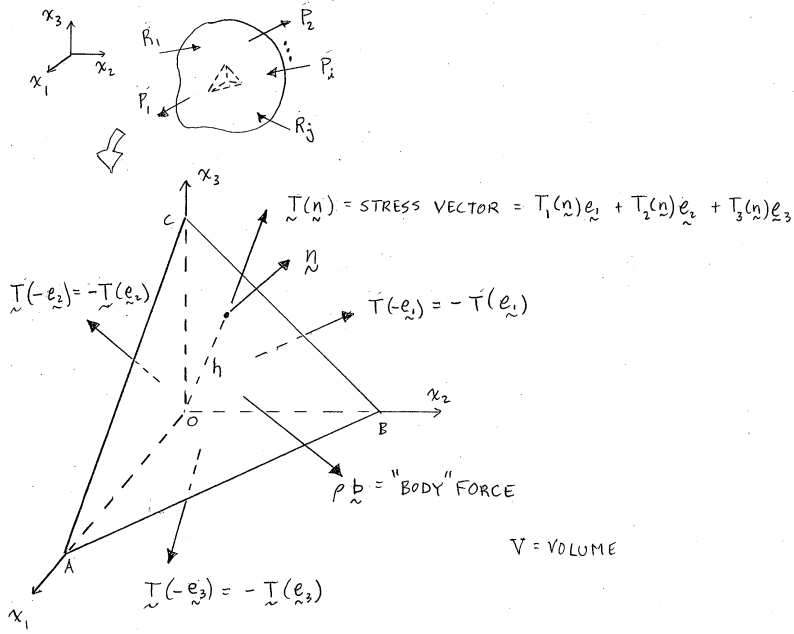 x₃
x₂
x₁
R₁
P₂
Pᵢ
P₁
Rⱼ
x₃
C
T(n) = STRESS VECTOR = T₁(n)e₁ + T₂(n)e₂ + T₃(n)e₃
n
T(-e₂) = -T(e₂)
T(-e₁) = - T(e₁)
h
x₂
O
B
ρb = "BODY" FORCE
V = VOLUME
A
T(-e₃) = - T(e₃)
x₁